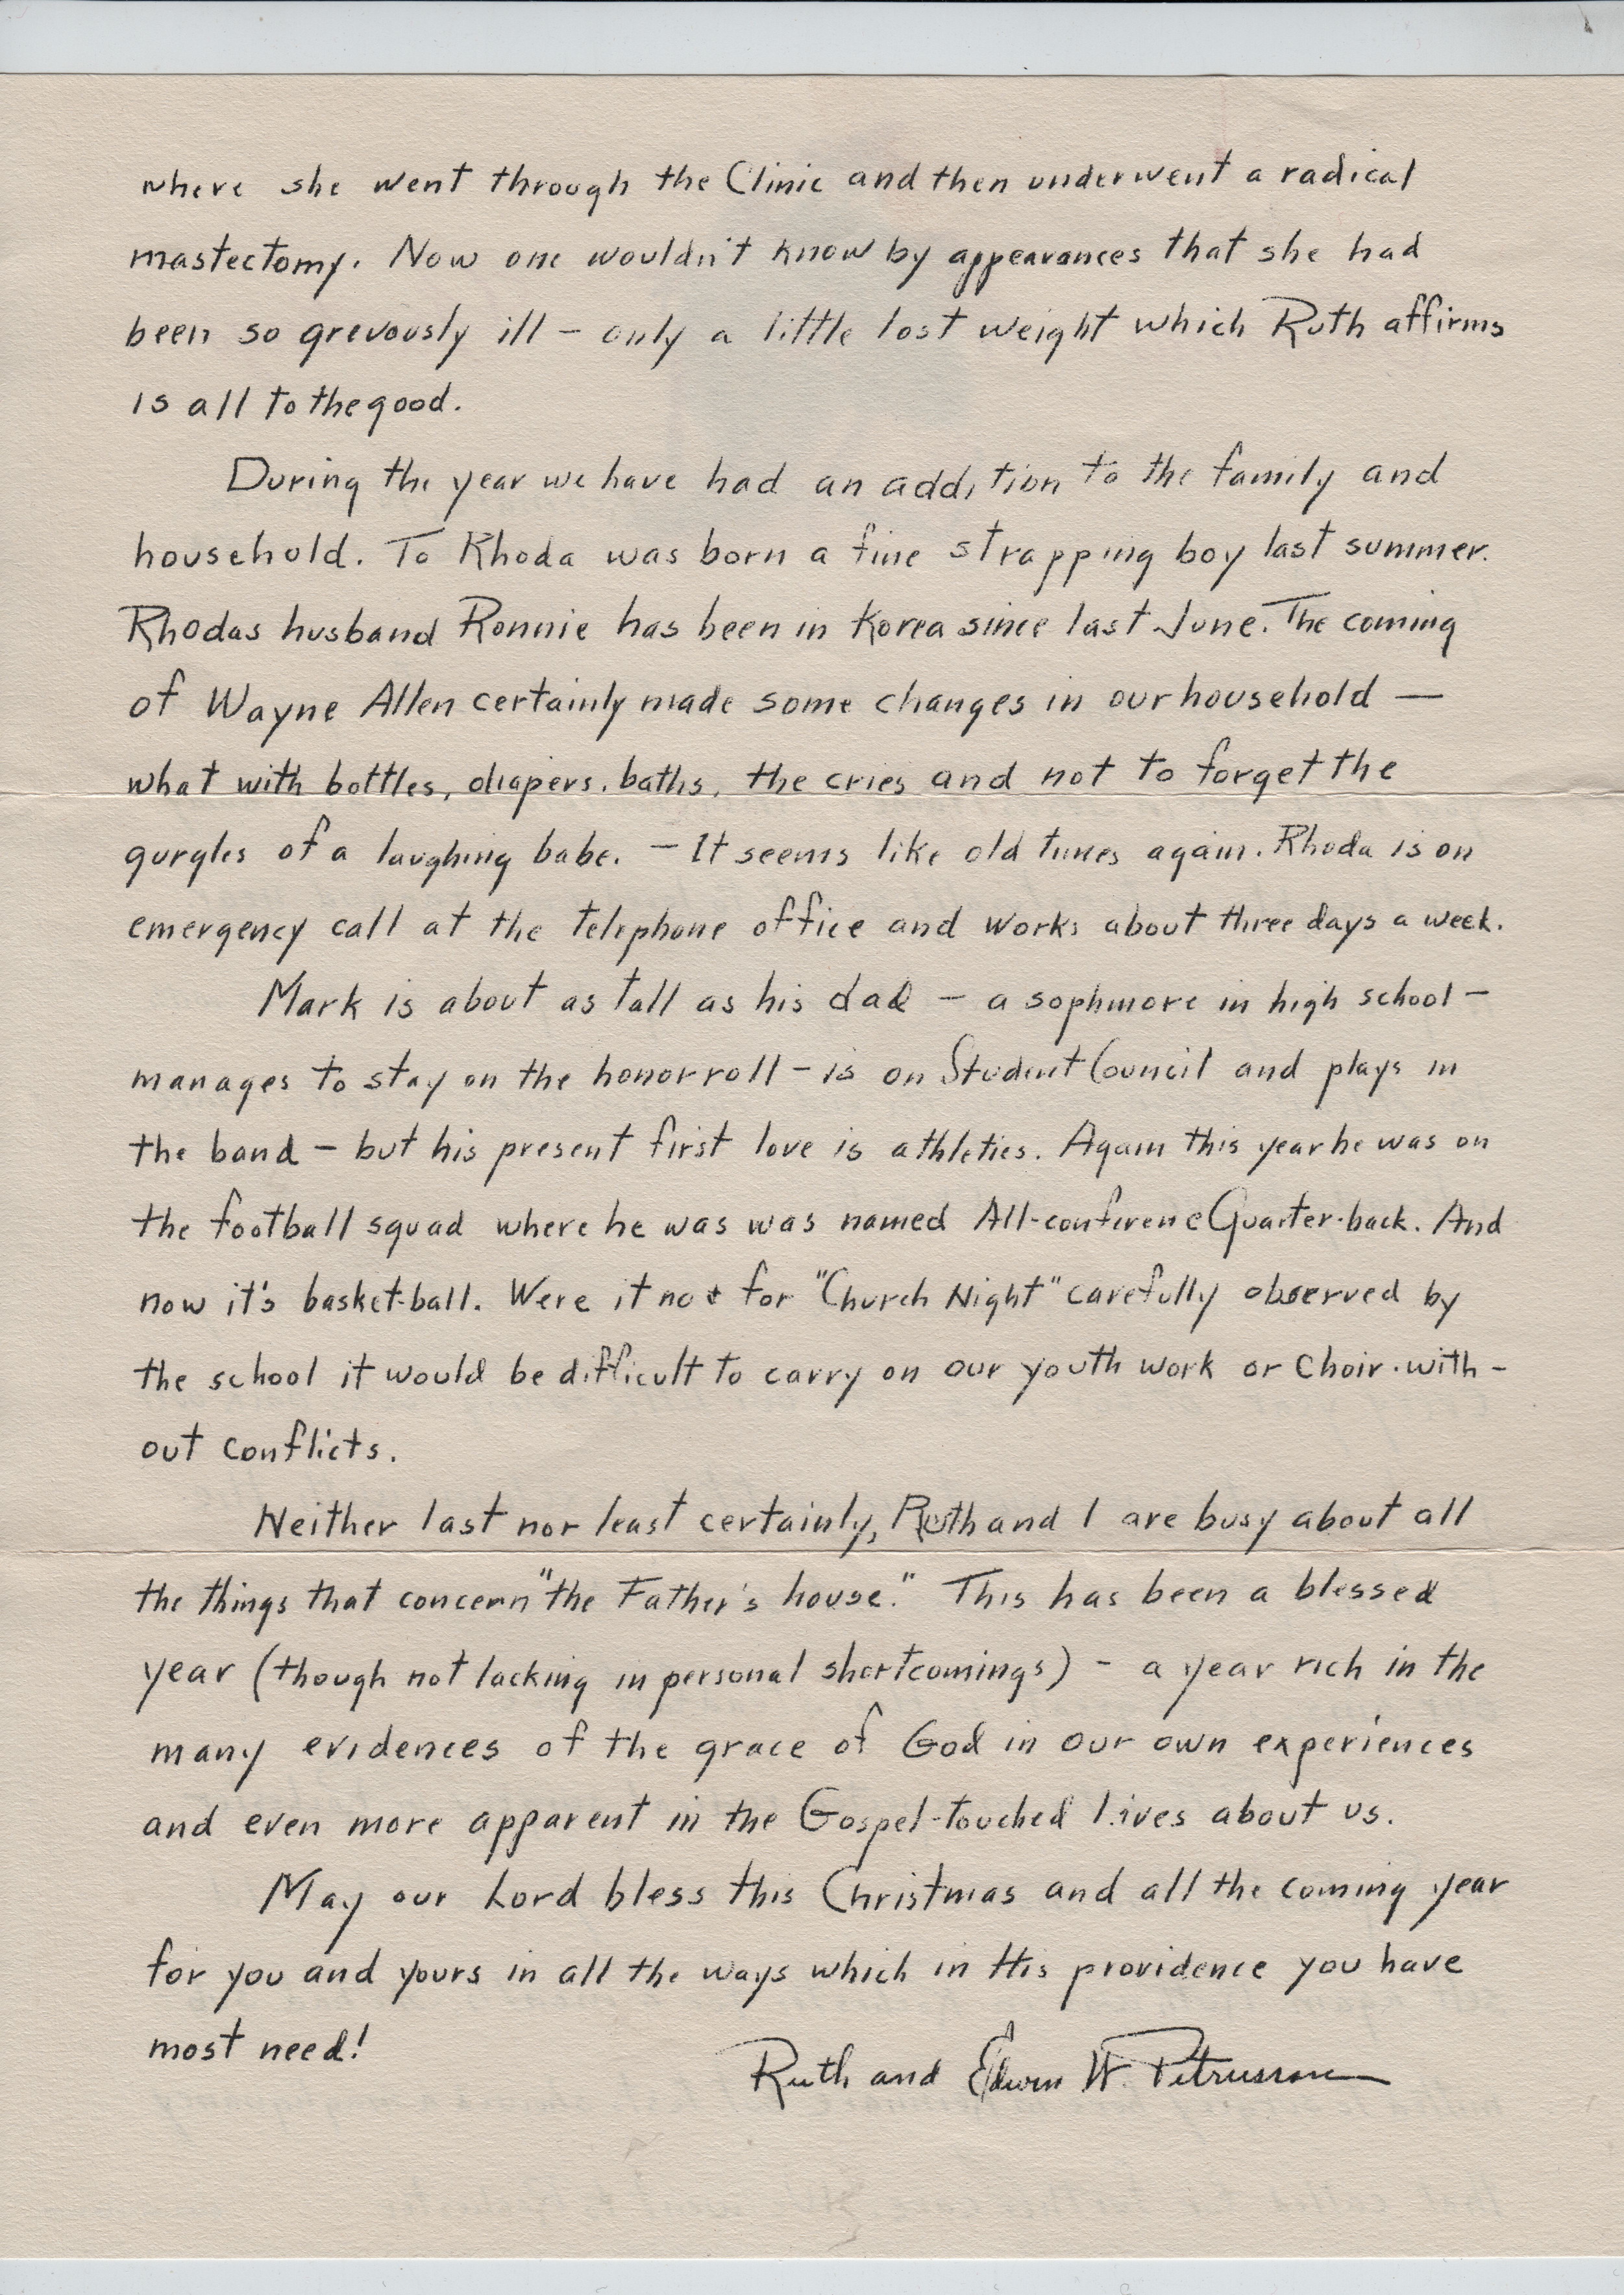 where she went through the Clinic and then underwent a radical
mastectomy. Now one wouldn't know by appearances that she had
been so grevously ill – only a little lost weight which Ruth affirms
is all to the good.
During the year we have had an addition to the family and
household. To Rhoda was born a fine strapping boy last summer.
Rhodas husband Ronnie has been in Korea since last June. The coming
of Wayne Allen certainly made some changes in our household —
what with bottles, diapers, baths, the cries and not to forget the
gurgles of a laughing babe. – It seems like old times again. Rhoda is on
emergency call at the telephone office and works about three days a week.
Mark is about as tall as his dad – a sophmore in high school –
manages to stay on the honor roll – is on Student Council and plays in
the band – but his present first love is athletics. Again this year he was on
the football squad where he was was named All-conferenc Quarter-back. And
now it's basket-ball. Were it not for "Church Night" carefully observed by
the school it would be difficult to carry on our youth work or Choir with-
out conflicts.
Neither last nor least certainly, Ruth and I are busy about all
the things that concern "the Father's house." This has been a blessed
year (though not lacking in personal shortcomings) – a year rich in the
many evidences of the grace of God in our own experiences
and even more apparent in the Gospel-touched lives about us.
May our Lord bless this Christmas and all the coming year
for you and yours in all the ways which in His providence you have
most need!
Ruth and Edwin W. Petrusson